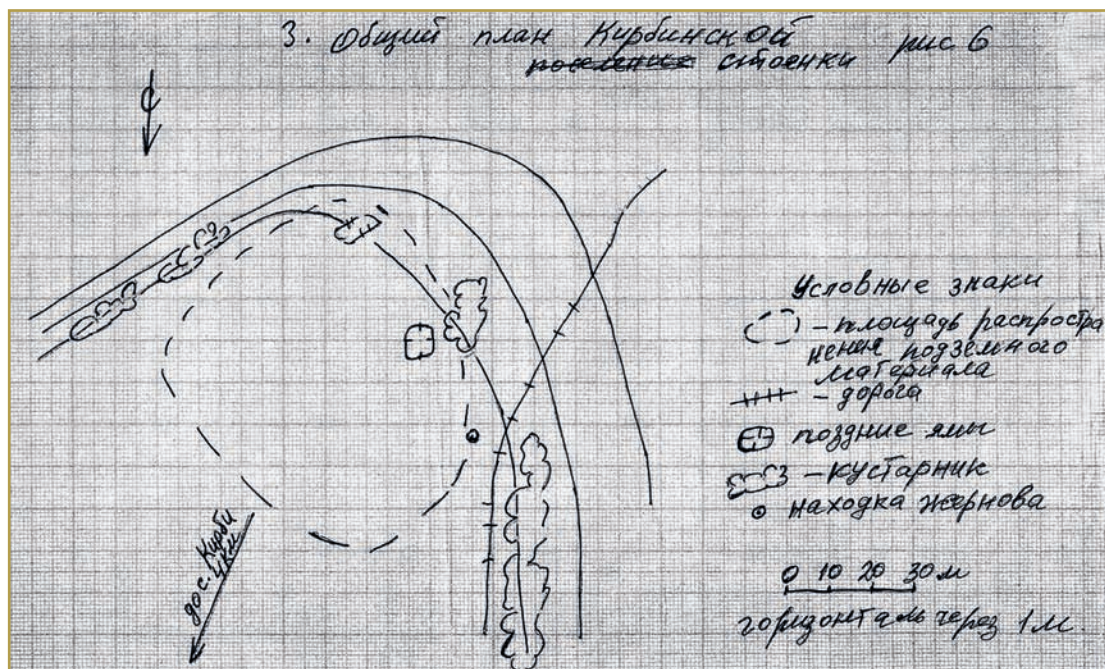 3. Общий план Кирбинской рис 6
поселение стоенки
С
Условные знаки
- площадь распростра
нения подземного
материала
- дорога
поздние ямы
- кустарник
находка жернова
до с. Кирби
4 км
0 10 20 30 м
горизонталь через 1 м.